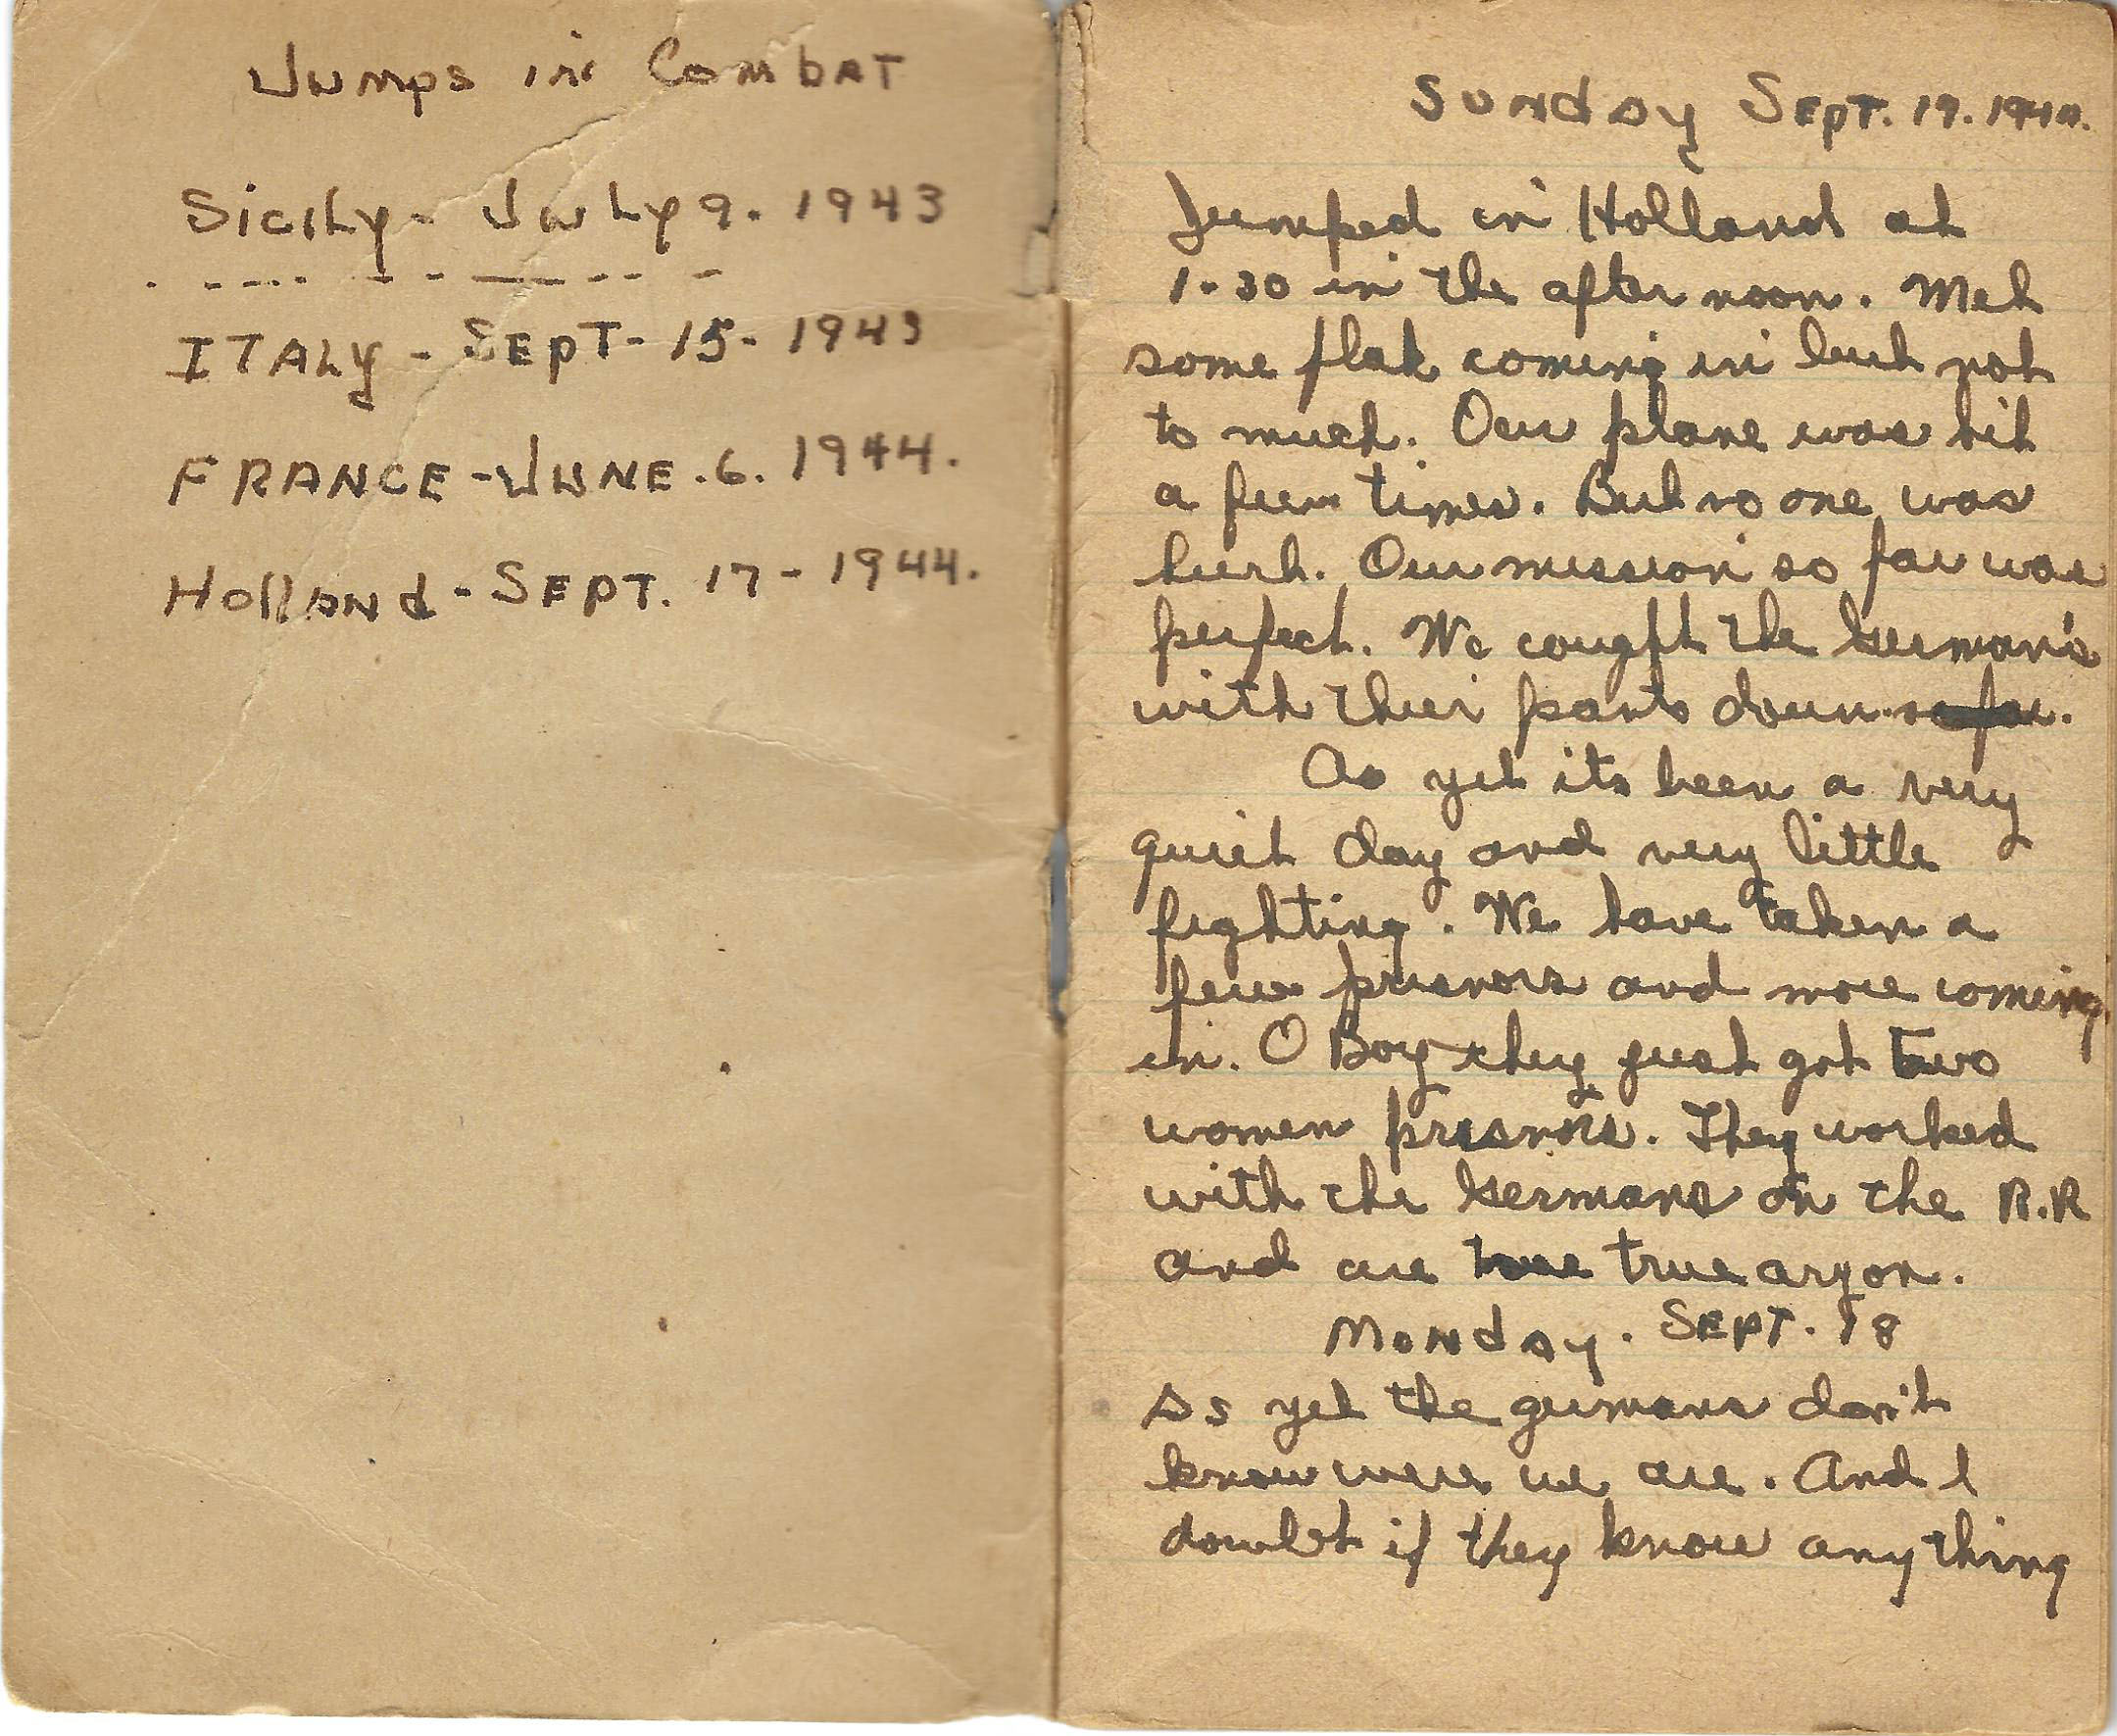 Jumps in Combat
Sicily - July 9. 1943
ITALY - SEPT - 15 - 1943
FRANCE - JUNE . 6. 1944.
Holland - SEPT. 17 - 1944.
Sunday SEPT. 17. 1944.
Jumped in Holland at
1-30 in the after noon. Met
some flak coming in but not
to much. Our plane was hit
a few times. But no one was
hurt. Our mission so far was
perfect. We cought the German's
with their pants down so far.
As yet its been a very
quiet day and very little
fighting. We have taken a
few prisnors and more coming
in. O Boy they just got two
women prisnors. They worked
with the Germans on the R.R
and are true aryon.
Monday. SEPT. 18
As yet the germans don't
know were we are. And I
doubt if they know any thing